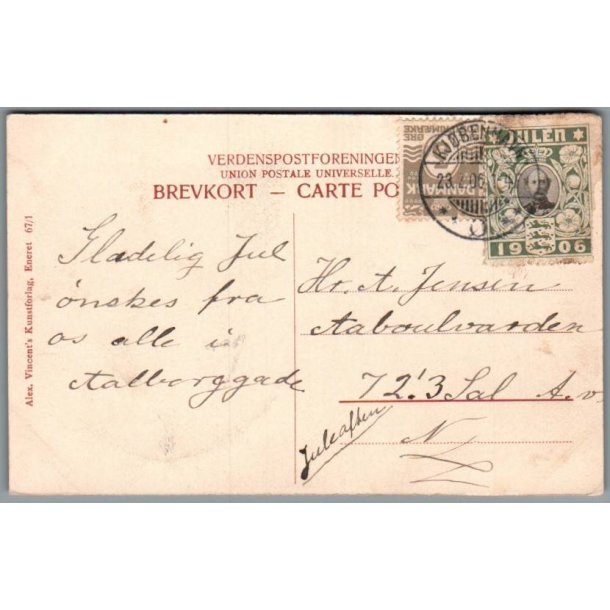 VERDENSPOSTFORENINGEN
UNION POSTALE UNIVERSELLE.
BREVKORT — CARTE PO
Alex. Vincent's Kunstforlag, Eneret 67/1
Glædelig Jul
ønskes fra
os alle i
Aalborggade
Hr. A. Jensen
Aaboulvarden
72'3 Sal A.v.
N
Juleaften
KJØBENHAVN
ØRE
DANMARK
JULEN
1906